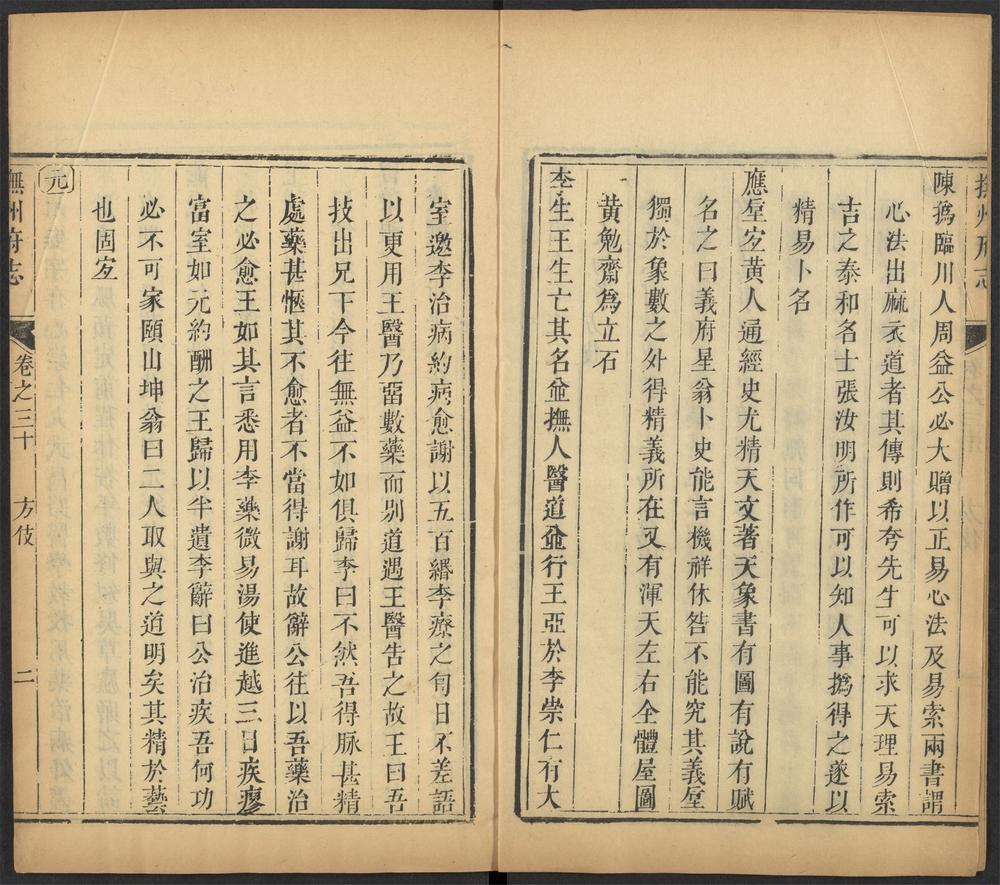 陳撝臨川人周益公必大贈以正易心法及易索兩書謂
心法出麻衣道者其傳則希夸先生可以求天理易索
吉之泰和名士張汝明所作可以知人事撝得之遂以
精易卜名
應垕宐黄人通經史尤精天文著天象書有圖有說有賦
名之曰義府星翁卜史能言機祥休咎不能究其義垕
獨於象數之外得精義所在又有渾天左右全體屋圖
黄勉齋爲立石
李生王生生亡其名並撫人醫道並行王亞於李崇仁有大
室邀李治病約病愈謝以五百緡李療之旬日不差語
以更用王醫乃畱數藥而别道遇王醫告之故王曰吾
技出兄下今往無益不如俱歸李曰不然吾得脉甚精
處藥甚愜其不愈者不當得謝耳故辭公往以吾藥治
之必愈王如其言悉用李藥微易湯使進越三日疾瘳
富室如元約酬之王歸以半遺李辭曰公治疾吾何功
必不可家頤山坤翁曰二人取與之道明矣其精於藝
也固宐
元
撫州府志
卷之三十
方伎
二